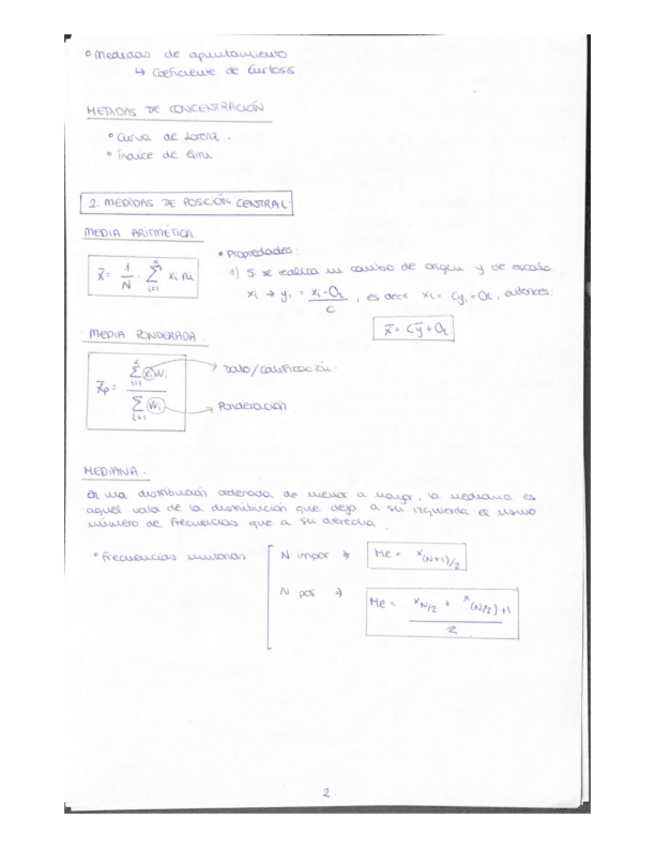 • Medidas de apuntamiento
↳ Coeficiente de Curtosis
MEDIDAS DE CONCENTRACIÓN
• Curva de Lorenz.
• Índice de Gini.
2. MEDIDAS DE POSCIÓN CENTRAL
MEDIA ARITMÉTICA
x̄ = 1/N · Σ xi ni
i=1
• Propiedades:
1) Si se realiza un cambio de origen y de escala
xi → yi = (xi - Ot)/C, es decir xi = Cyi + Ot, entonces:
x̄ = Cȳ + Ot
MEDIA PONDERADA
x̄p = Σ xi wi / Σ wi
i=1
i=1
→ Dato/calificación.
→ Ponderación
MEDIANA.
En una distribución ordenada de menor a mayor, la mediana es
aquel valor de la distribución que deja a su izquierda el mismo
número de frecuencias que a su derecha.
• Frecuencias unitarias
N impar → Me = x(N+1)/2
N par → Me = (xN/2 + x(N/2)+1) / 2
2.